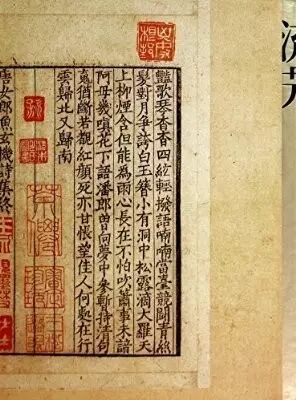 豔歌琴杳杳四絃輕撥語喃喃當臺競鬭青絲
髮對月爭誇白玉簪小有洞中松露滴大羅天
上柳煙含但能爲雨心長在不怕吹簫事未諳
阿母幾嗔花下語潘郎曾向夢中參暫持清句
魂猶斷若覩紅顔死亦甘悵望佳人何處在行
雲歸北又歸南
唐女郎魚玄機詩集終